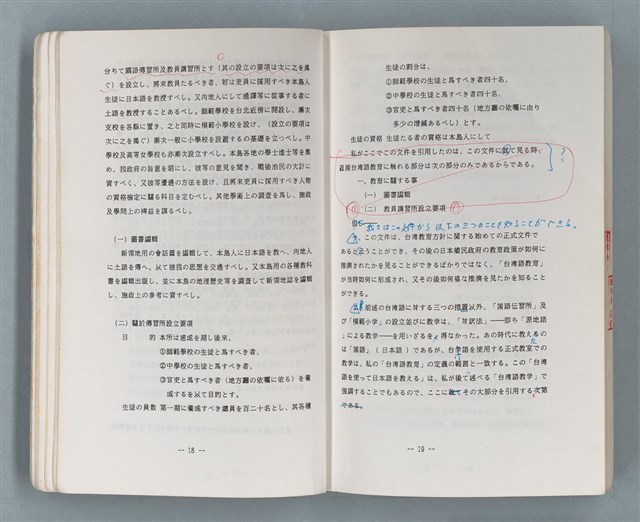 分ちて國語傳習所及教員講習所とす（其の設立の要項は次に之を揭
ぐ）を設立し、將來教員たるべき者、若は吏員に採用すべき本島人
生徒に日本語を教授すべし。又內地人にして通譯等に從事する者に
土語を教授することあるべし。師範學校を台北近傍に開設し、漸次
支校を各縣に置き、之と同時に模範小學校を設け、（設立の要項は
次に之を揭ぐ）漸次一般に小學校を設置するの基礎を立つべし。中
學校及高等女學校も亦漸次設立すべし。本島各地の學士進士等を集
め、我政府の旨意を明にし、彼等の意見を聞き、戰後治民の大計に
資すべく、又彼等優遇の方法を設け、且將來吏員に採用すべき人物
の資格檢定に關る科目を定むべし。其他學術上の調查を爲し、施政
及學問上の裨益を謀るべし。
(一) 圖書編輯
新領地用の會話書を編輯して、本島人に日本語を教へ、內地人
に土語を得へ、以て彼我の思想を交通すべし。又本島用の各種教科
書を編輯出版し、並に本島の地理歷史等を調查して新領地誌を編輯
し、施政上の參考に資すべし。
(二) 關於傳習所設立要項
目 的 本所は速成を期し後來、
①師範學校の生徒と爲すべき者、
②中學校の生徒と爲すべき者、
③官吏と爲すべき者（地方廳の依囑に依る）を養
成するを以て目的とす。
生徒の員數 第一期に養成すべき總員を百二十名とし、其各種
-- 18 --
生徒の割合は、
①師範學校の生徒と爲すべき者四十名、
②中學校の生徒と爲すべき者四十名、
③官吏と爲すべき者四十名（地方廳の依囑に由り
多少の增減あるべし）とす。
生徒の資格 生徒たる者の資格は本島人にして
私がここでこの文件を引用したのは、この文件に就て見る時、
直接台湾語教育に触れる部分は次の部分のみであるからである。
一、教育に關する事
(一) 圖書編輯
(二) 教員講習所設立要項
我々はこの文件から以下の三つのことを知ることができる。
この文件は、台湾教育方針に関する始めての正式文件で
あると云うことができ、その後の日本植民政府の教育政策が如何に
推薦されたかを見ることができるばかりではなく、「台湾語教育」
が当時如何に形成され、又その後如何様な推薦を見たかを知ること
ができる。
前述の台湾語に対する三つの措置以外、「国語伝習所」及
び「模範小学」の設立並びに教学は、「対訳法」——即ち「原地語」
による教学——を用いざるを得なかった。あの時代に教えるの
は「国語」（日本語）であるが、台湾語を使用する正式教室での
教学は、私の「台湾語教育」の定義の範囲と一致する。この「台湾
語を使って日本語を教える」は、私が後で述べる「台湾語教学」で
強調することでもあるので、ここに敢てその大部分を引用する次第
である。
-- 19 --